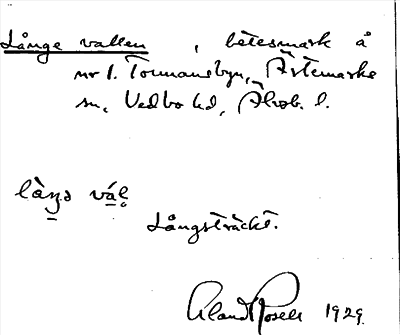 Långe vallen, betesmark å
nr 1. Tormansbyn, Ärtemarks
sn, Vedbo hd, Älvsb. l.
làŋə vál
Långsträckt.
Roséll 1929